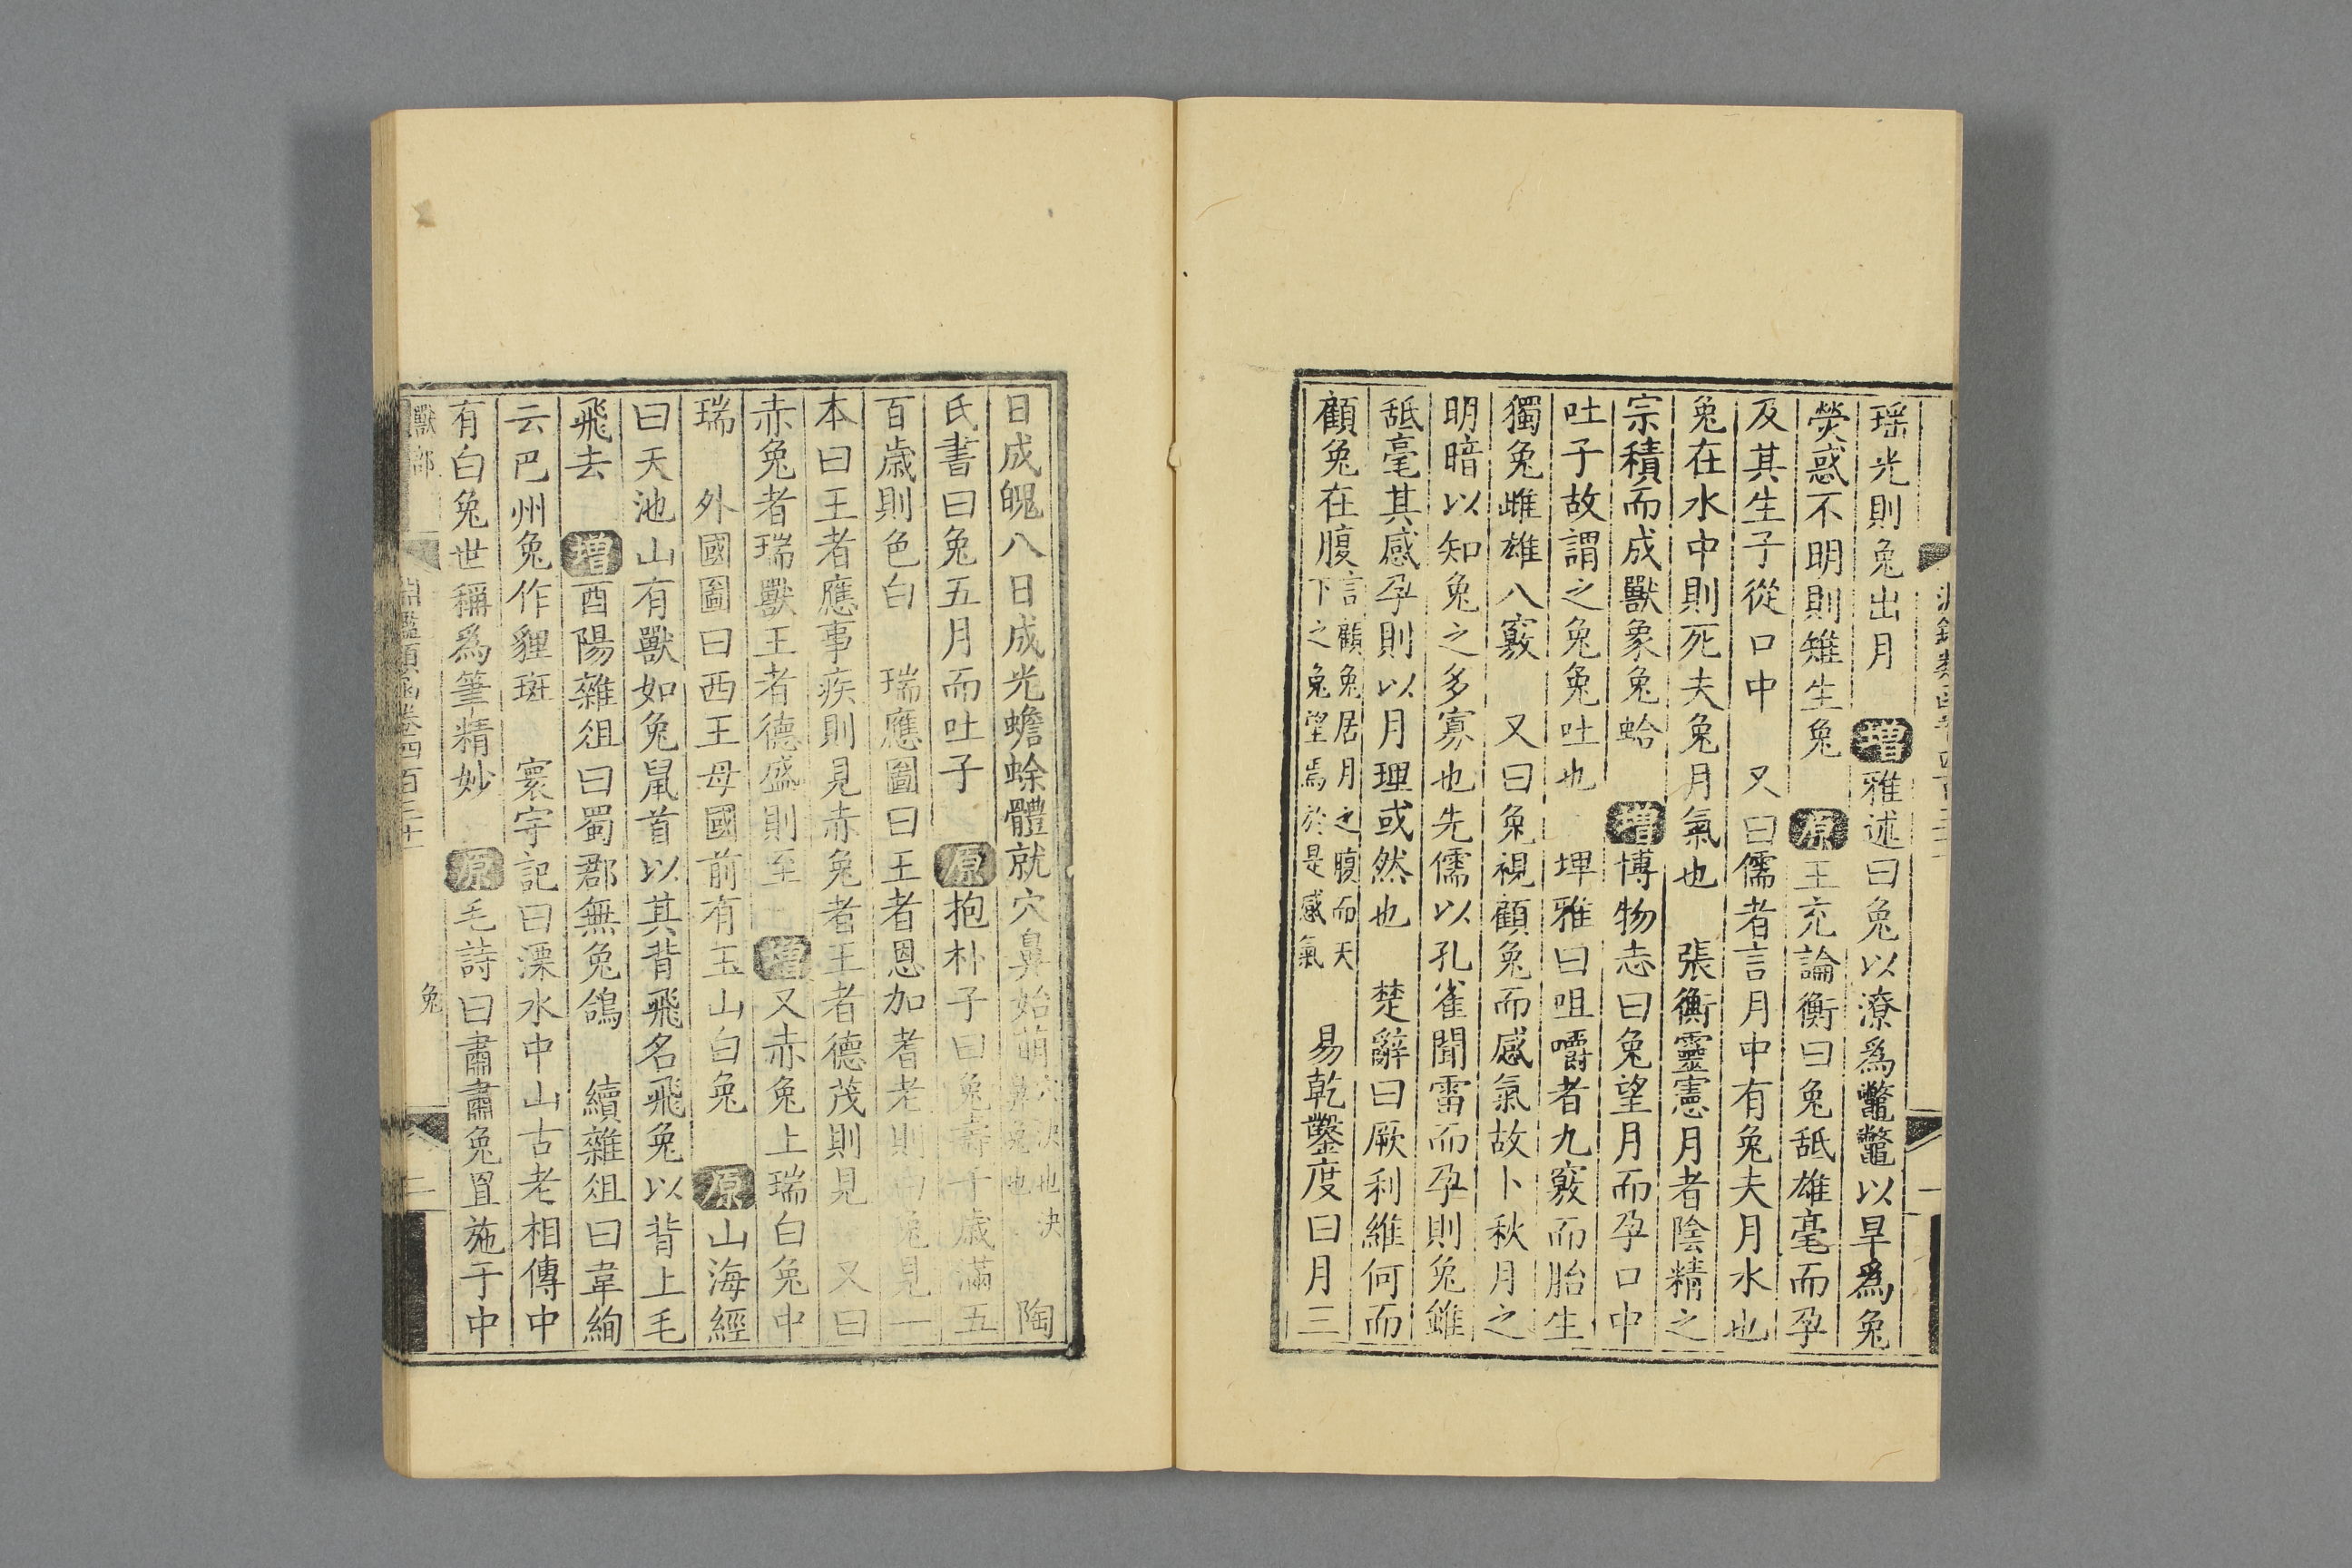 瑶光則兔出月　增雅述曰兔以潦爲鼈鼈以旱爲兔
熒惑不明則雉生兔　原王充論衡曰兔舐雄毫而孕
及其生子從口中　又曰儒者言月中有兔夫月水也
兔在水中則死夫兔月氣也　張衡靈憲月者陰精之
宗積而成獸象兔蛤　增博物志曰兔望月而孕口中
吐子故謂之兔兔吐也　埤雅曰咀嚼者九竅而胎生
獨兔雌雄八竅　又曰兔視顧兔而感氣故卜秋月之
明暗以知兔之多寡也先儒以孔雀聞雷而孕則兔雖
舐毫其感孕則以月理或然也　楚辭曰厥利維何而
顧兔在腹言顧兔居月之腹而天下之兔望焉於是感氣　易乾鑿度曰月三
日成魄八日成光蟾蜍體就穴鼻始萌穴決也決鼻兔也　陶
氏書曰兔五月而吐子　原抱朴子曰兔壽千歲滿五
百歲則色白　瑞應圖曰王者恩加耆老則白兔見一
本曰王者應事疾則見赤兔者王者德茂則見　又曰
赤兔者瑞獸王者德盛則至　增又赤兔上瑞白兔中
瑞　外國圖曰西王母國前有玉山白兔　原山海經
曰天池山有獸如兔鼠首以其背飛名飛兔以背上毛
飛去　增酉陽雜俎曰蜀郡無兔鴿　續雜俎曰韋絢
云巴州兔作貍斑　寰宇記曰溧水中山古老相傳中
有白兔世稱爲筆精妙　原毛詩曰肅肅兔罝施于中
獸部　淵鑑類函卷四百三十一　兔　二